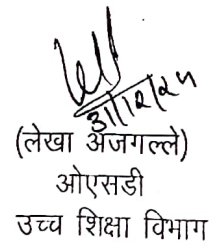 31/12/24
(लेखा अजगल्ले)
ओएसडी
उच्च शिक्षा विभाग